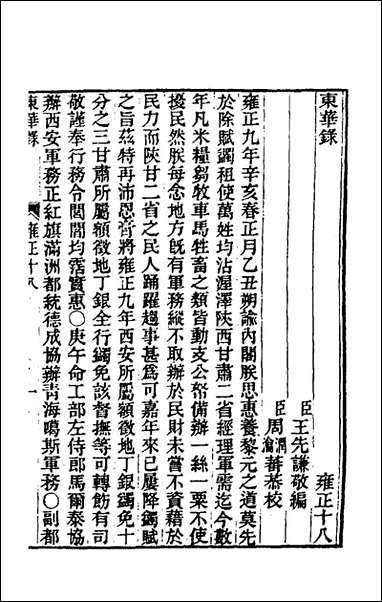 東華錄
雍正十八
臣王先謙敬編
臣周潤蕃周瀹蕃恭校
雍正九年辛亥春正月乙丑朔諭內閣朕思惠養黎元之道莫先
於除賦蠲租使萬姓均沾渥澤陝西甘肅二省經理軍需迄今數
年凡米糧芻牧車馬牲畜之類皆動支公帑備辦一絲一粟不使
擾民然朕每念地方旣有軍務縱不取辦於民財未嘗不資藉於
民力而陝甘二省之民人踊躍趨事甚爲可嘉年來已屢降蠲賦
之旨茲特再沛恩膏將雍正九年西安所屬額徵地丁銀蠲免十
分之三甘肅所屬額徵地丁銀全行蠲免該督撫等可轉飭有司
敬謹奉行務令閭閻均霑實惠○庚午命工部左侍郎馬爾泰協
辦西安軍務正紅旗滿洲都統德成協辦青海噶斯軍務○副都
東華錄 雍正十八 一